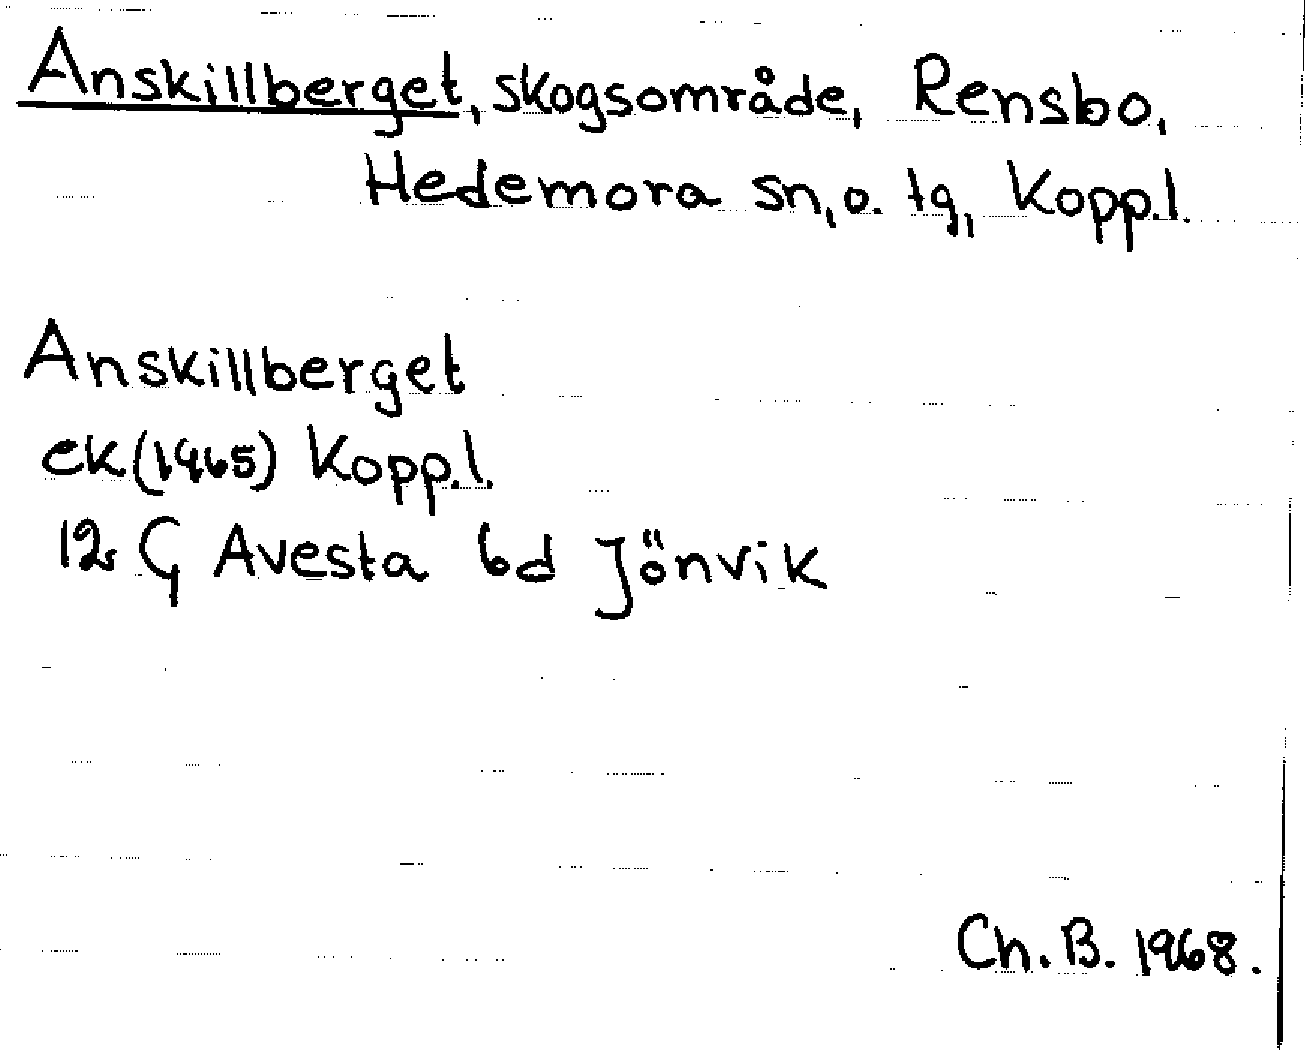 Anskillberget, skogsområde, Rensbo,
Hedemora sn, o. tg, Kopp.l.
Anskillberget
ek (1965) Kopp.l.
12 G Avesta 6d Jönvik
Ch. B. 1968.